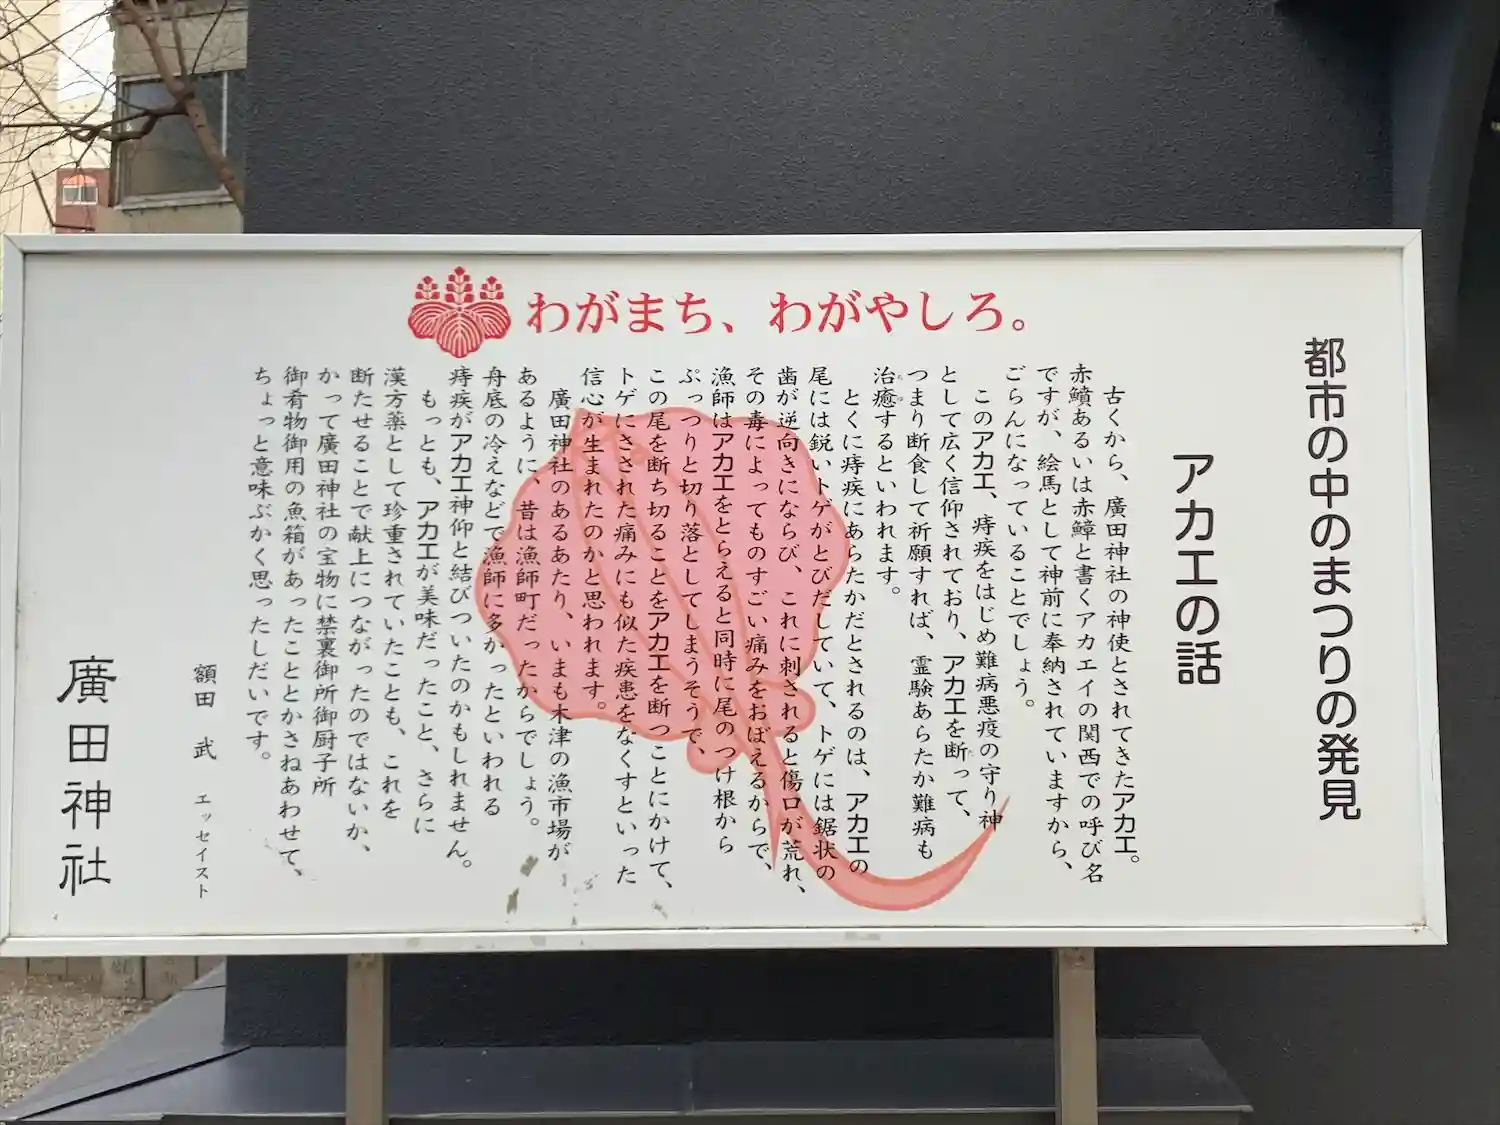 わがまち、わがやしろ。
都市の中のまつりの発見
アカエの話
古くから、廣田神社の神使とされてきたアカエ。
赤鱝あるいは赤鱆と書くアカエイの関西での呼び名
ですが、絵馬として神前に奉納されていますから、
ごらんになっていることでしょう。
このアカエ、痔疾をはじめ難病悪疫の守り神
として広く信仰されており、アカエを断って、
た
つまり断食して祈願すれば、霊験あらたか難病も
治癒するといわれます。
ちゆ
とくに痔疾にあらたかだとされるのは、アカエの
尾には鋭いトゲがとびだしていて、トゲには鋸状の
歯が逆向きにならび、これに刺されると傷口が荒れ、
その毒によってものすごい痛みをおぼえるからで、
漁師はアカエをとらえると同時に尾のつけ根から
ぷっつりと切り落としてしまうそうで、
この尾を断ち切ることをアカエを断つことにかけて、
トゲにさされた痛みにも似た疾患をなくすといった
信心が生まれたのかと思われます。
廣田神社のあるあたり、いまも木津の漁市場が
あるように、昔は漁師町だったからでしょう。
舟底の冷えなどで漁師に多かったといわれる
痔疾がアカエ神仰と結びついたのかもしれません。
もっとも、アカエが美味だったこと、さらに
漢方薬として珍重されていたことも、これを
断たせることで献上につながったのではないか、
かって廣田神社の宝物に禁裏御所御厨子所
御肴物御用の魚箱があったこととかさねあわせて、
ちょっと意味ぶかく思ったしだいです。
額田 武 エッセイスト
廣田神社